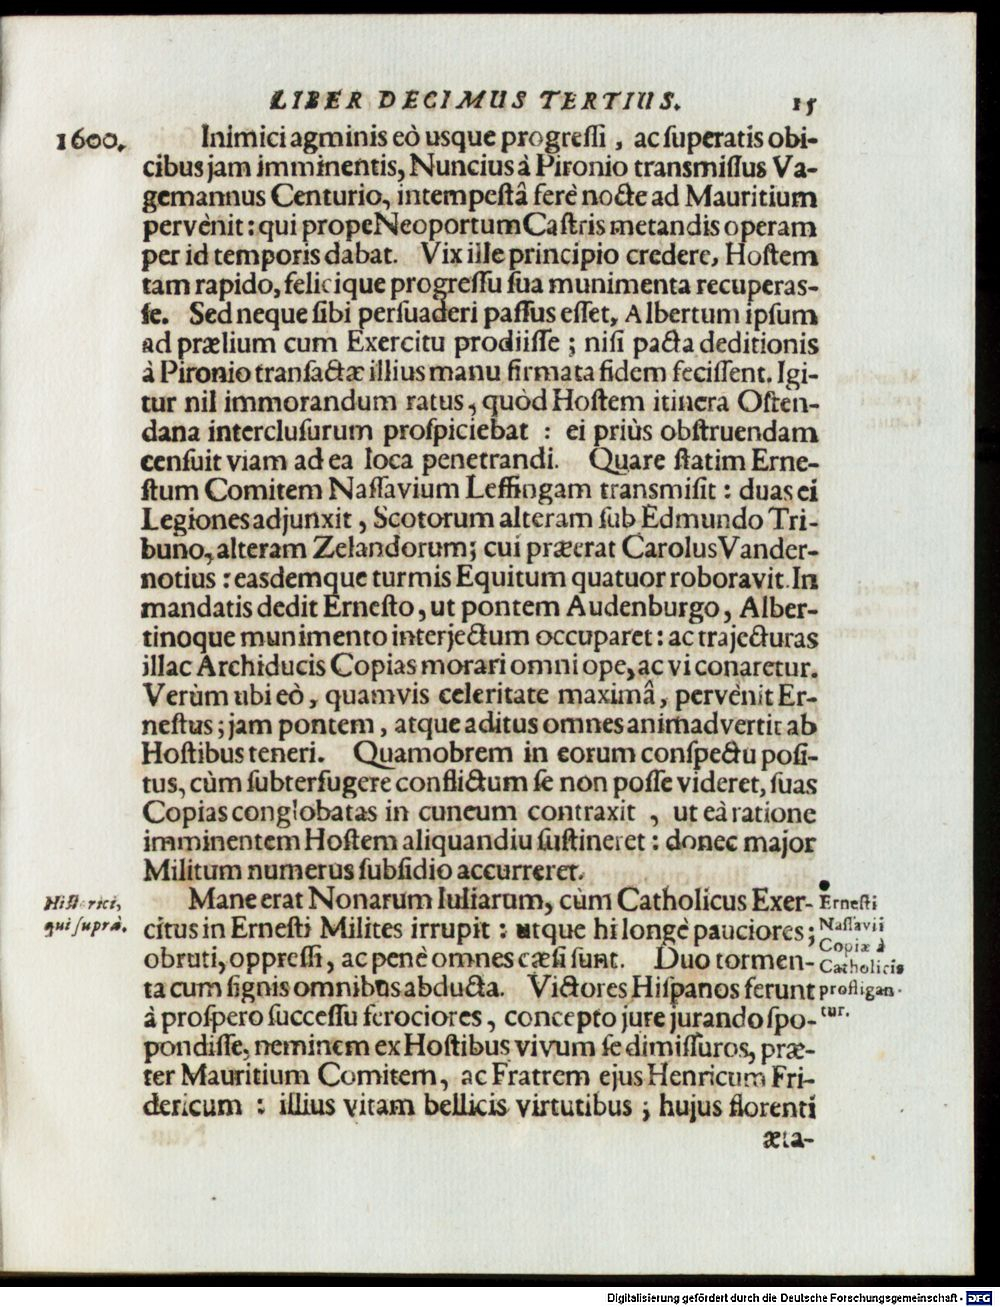 LIBER DECIMUS TERTIUS. 15
1600. Inimici agminis eò usque progreſſi , ac ſuperatis obi-
cibus jam imminentis, Nuncius à Pironio transmiſſus Va-
gemannus Centurio, intempeſtâ ferè nocte ad Mauritium
pervènit : qui prope Neoportum Caſtris metandis operam
per id temporis dabat. Vix ille principio credere, Hoſtem
tam rapido, felicique progreſſu ſua munimenta recuperas-
ſe. Sed neque ſibi perſuaderi paſſus eſſet, Albertum ipſum
ad prælium cum Exercitu prodiiſſe ; niſi pacta deditionis
à Pironio tranſactæ illius manu firmata fidem feciſſent. Igi-
tur nil immorandum ratus, quòd Hoſtem itinera Oſten-
dana intercluſurum proſpiciebat : ei priùs obſtruendam
cenſuit viam ad ea loca penetrandi. Quare ſtatim Erne-
ſtum Comitem Naſſavium Leffingam transmiſit : duas ei
Legiones adjunxit , Scotorum alteram ſub Edmundo Tri-
buno, alteram Zelandorum; cui præerat Carolus Vander-
notius : easdemque turmis Equitum quatuor roboravit. In
mandatis dedit Erneſto, ut pontem Audenburgo, Alber-
tinoque munimento interjectum occuparet : ac trajecturas
illac Archiducis Copias morari omni ope, ac vi conaretur.
Verùm ubi eò, quamvis celeritate maximâ, pervènit Er-
neſtus ; jam pontem, atque aditus omnes animadvertit ab
Hoſtibus teneri. Quamobrem in eorum conſpectu poſi-
tus, cùm ſubterfugere conflictum ſe non poſſe videret, ſuas
Copias conglobatas in cuneum contraxit , ut eà ratione
imminentem Hoſtem aliquandiu ſuſtineret : donec major
Militum numerus ſubſidio accurreret.
Hiſtorici, qui ſuprà.
Mane erat Nonarum Iuliarum, cùm Catholicus Exer-
citus in Erneſti Milites irrupit : utque hi longè pauciores;
obruti, oppreſſi, ac penè omnes cæſi ſunt. Duo tormen-
ta cum ſignis omnibus abducta. Victores Hiſpanos ferunt
à proſpero ſucceſſu ferociores, concepto jure jurando ſpo-
pondiſſe, neminem ex Hoſtibus vivum ſe dimiſſuros, præ-
ter Mauritium Comitem, ac Fratrem ejus Henricum Fri-
dericum : illius vitam bellicis virtutibus ; hujus florenti
Erneſti
Naſſavii
Copiæ à
Catholicis
profligan-
tur.
æta-
Digitalisierung gefördert durch die Deutsche Forschungsgemeinschaft - DFG